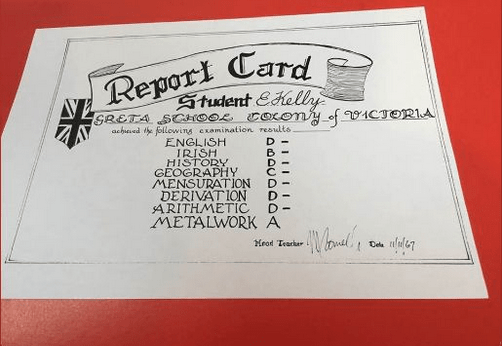 Report Card
Student E Kelly
GRETA SCHOOL COLONY of VICTORIA
achieved the following examination results
ENGLISH D-
IRISH B-
HISTORY D-
GEOGRAPHY C-
MENSURATION D-
DERIVATION D-
ARITHMETIC D-
METALWORK A
Head Teacher Date 11/11/67